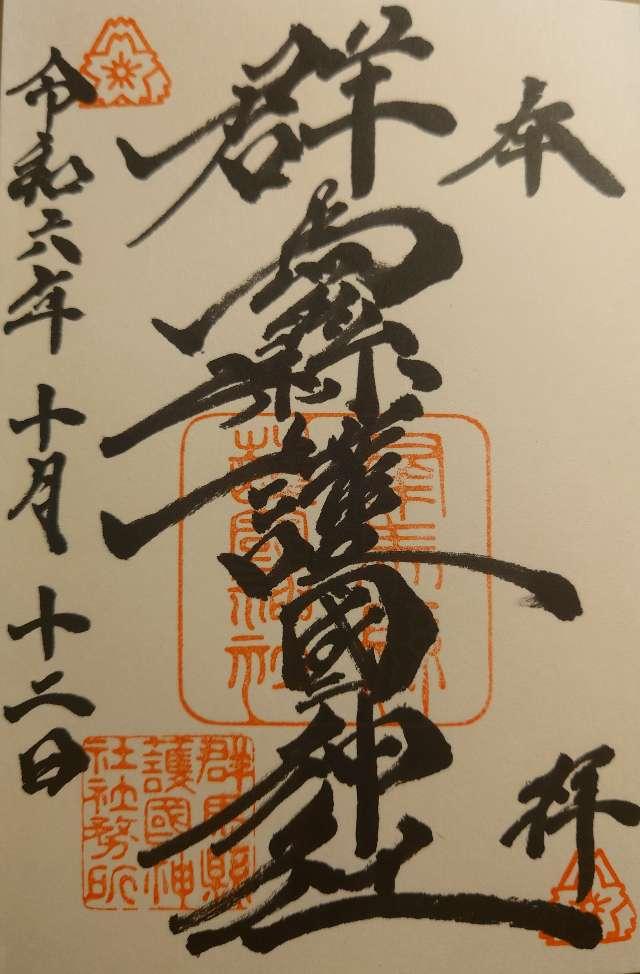 奉拝
群馬縣護國神社
令和六年十月十二日
群馬縣
護國神
社社務所